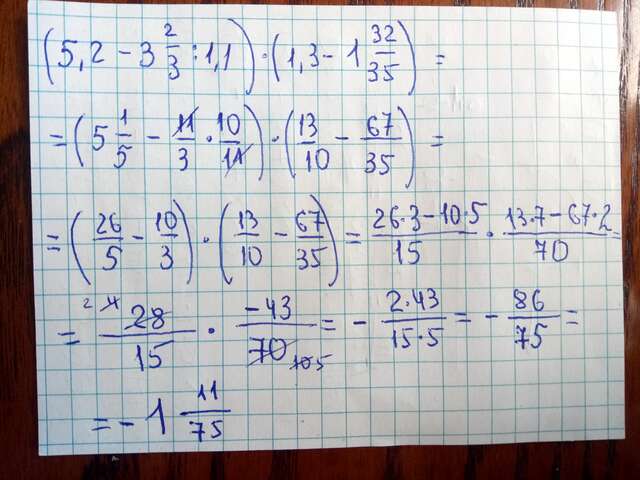 (5,2 - 3 2/3 : 1,1) · (1,3 - 1 32/35) =
= (5 1/5 - 11/3 · 10/11) · (13/10 - 67/35) =
= (26/5 - 10/3) · (13/10 - 67/35) = (26·3 - 10·5)/15 · (13·7 - 67·2)/70 =
= 2 4 28/15 · -43/70 10 5 = - (2·43)/(15·5) = - 86/75 =
= - 1 11/75